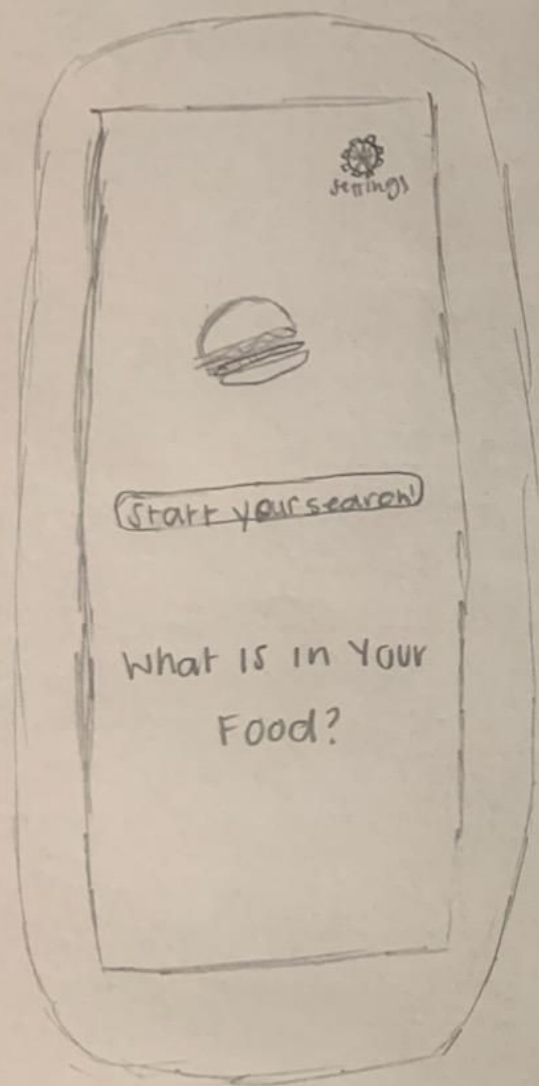 settings
Start your search!
What is in Your
Food?